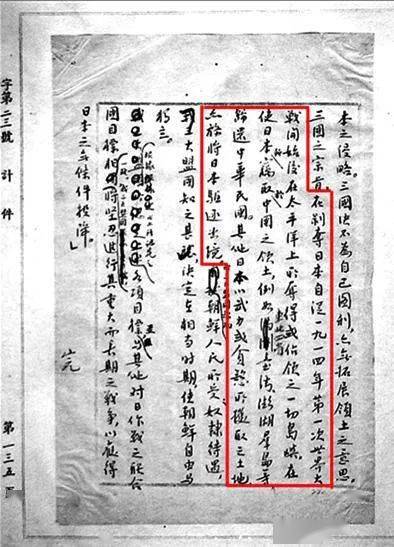 本之侵略。三國決不為自己圖利，亦無拓展領土之意思。
三國之宗旨，在剝奪日本自從一九一四年第一次世界大
戰開始後在太平洋上所奪得或佔領之一切島嶼；在
使日本竊取中國之領土，例如臺灣澎湖群島等
歸還中華民國。其他日本以武力或貪慾所攫取之土地
亦務將日本驅逐出境。朝鮮人民所受奴隸待遇，
大盟國知之甚決定在相當時期使朝鮮自由與
獨立。
各項目標與其他對日作戰之聯合
國目標堅忍進行其重大而長期之戰爭，以獲得
日本之無條件投降。」
字第二三號 計 件 第一三五